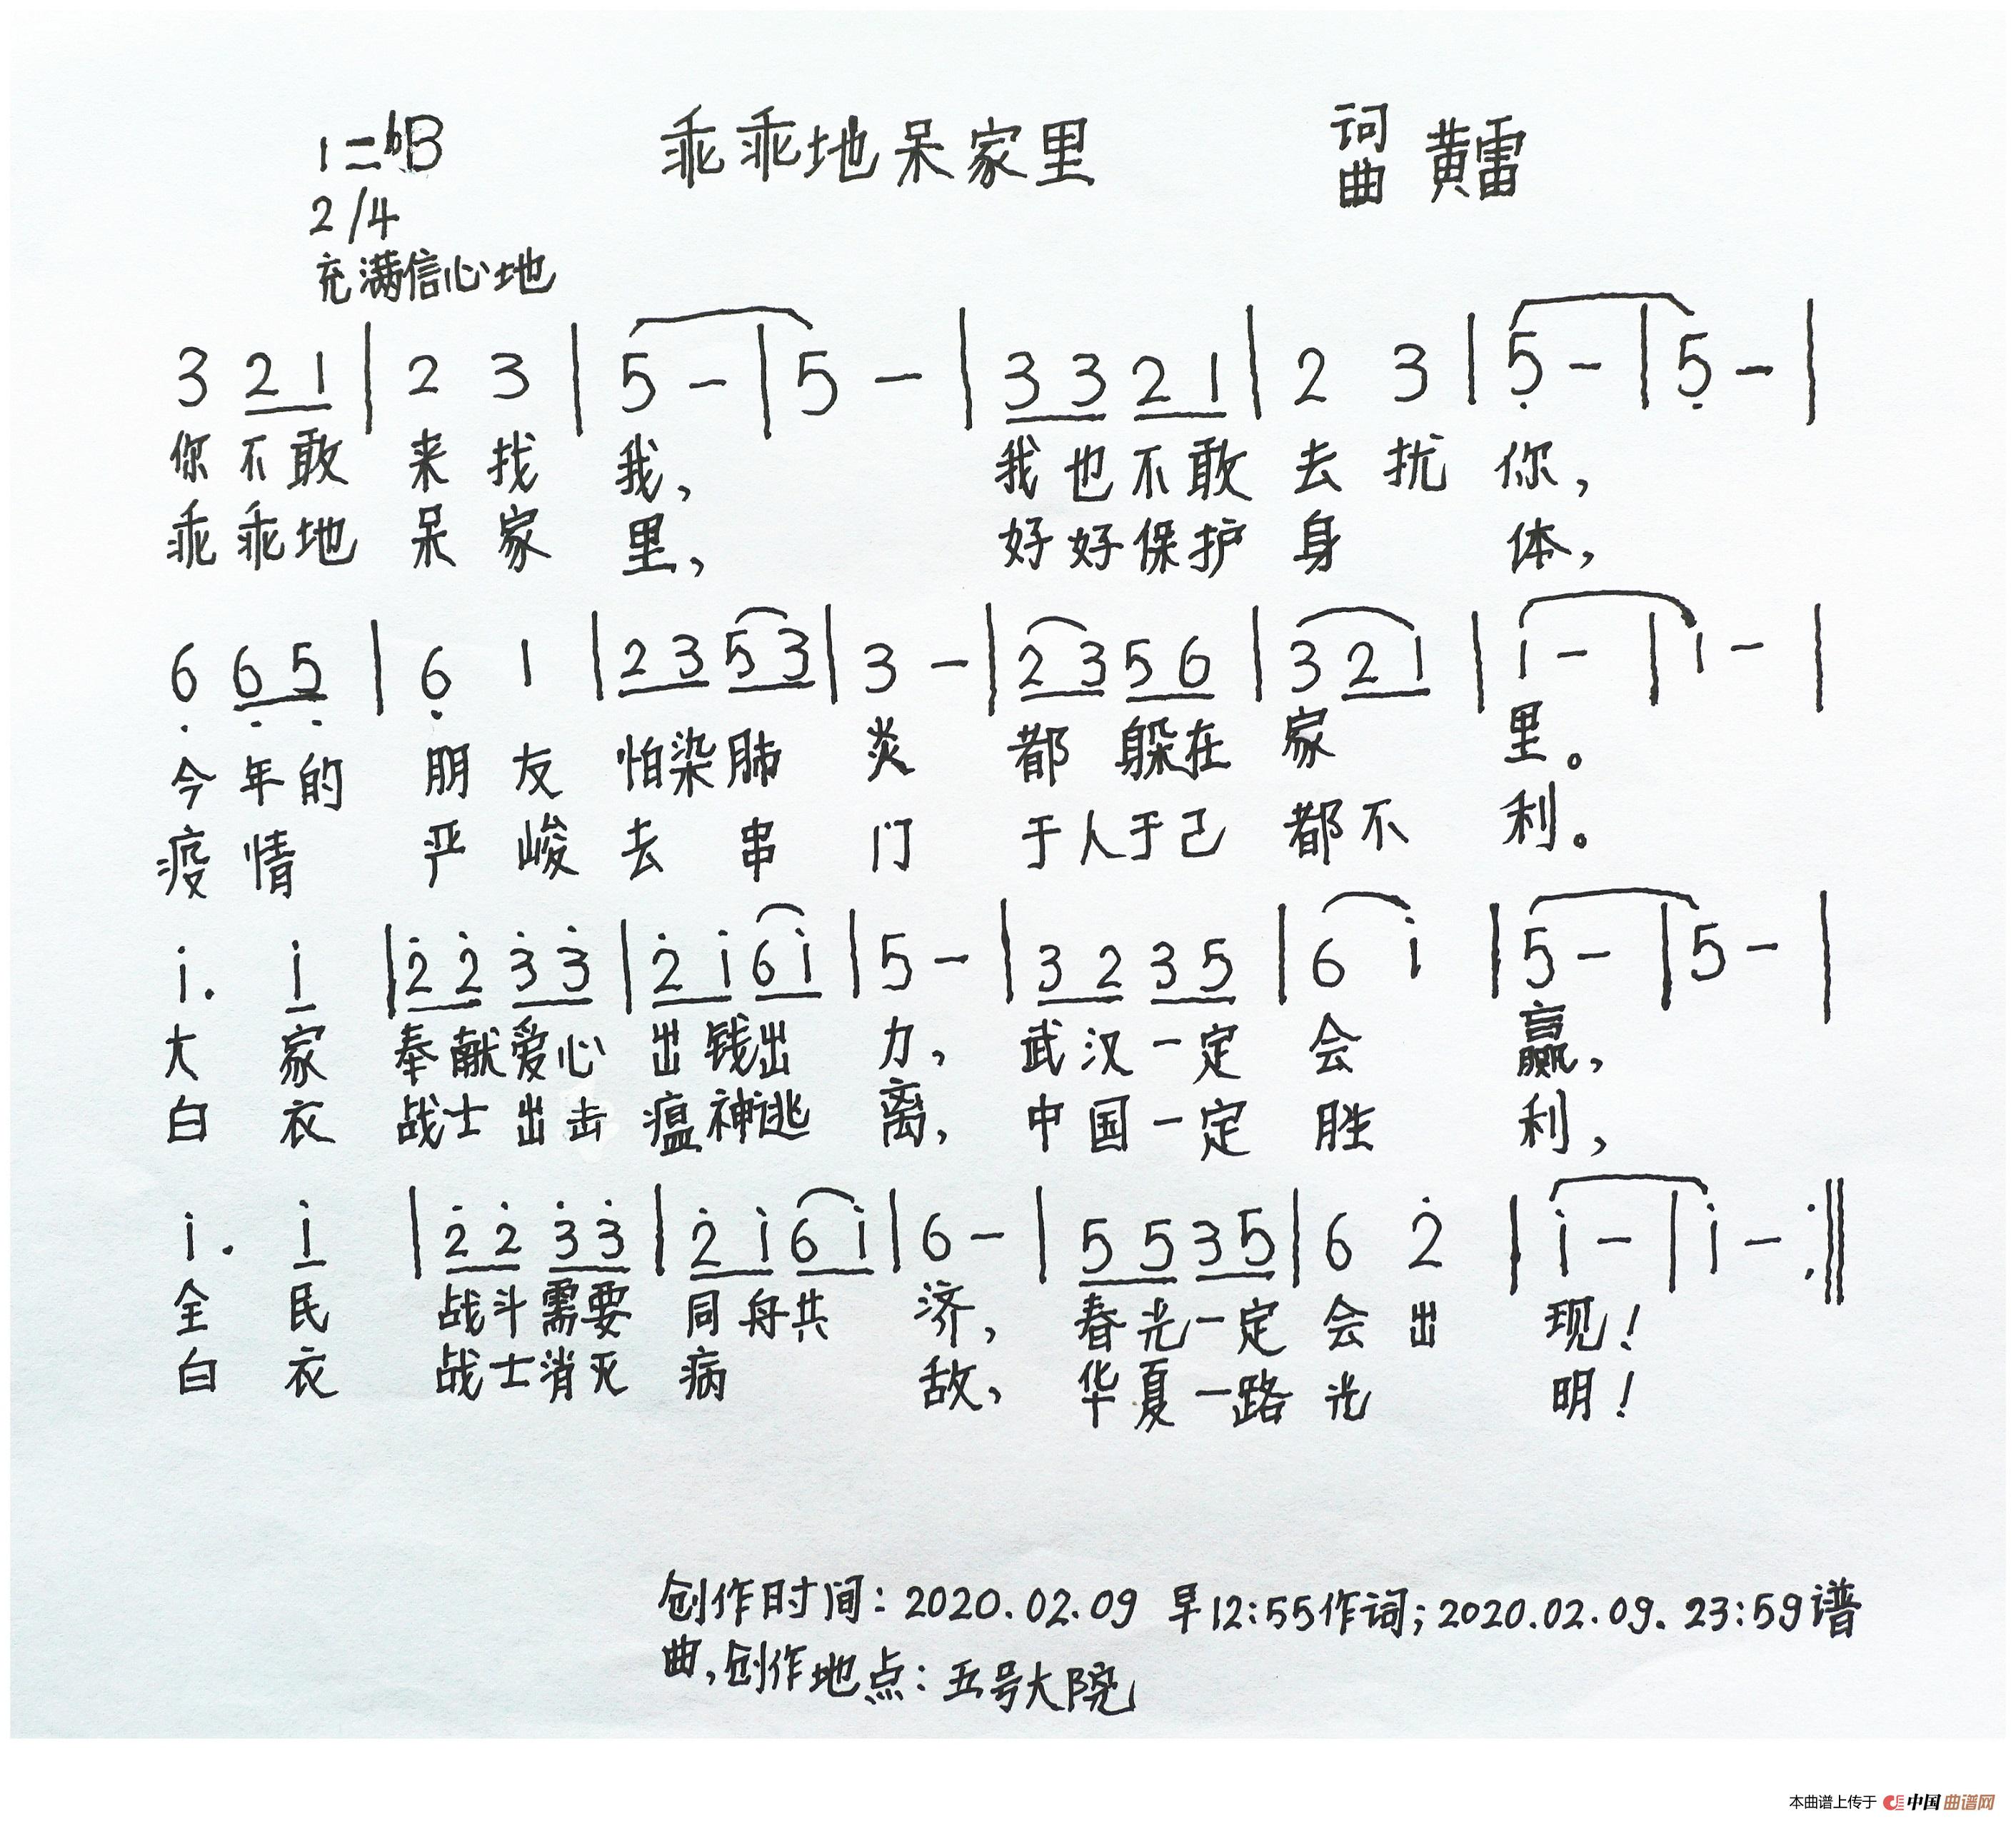 1=ᵇB 乖乖地呆家里 词曲 黄雷
2/4
充满信心地
3 2 1 | 2 3 | 5 - | 5 - | 3 3 2 1 | 2 3 | 5̣ - | 5̣ - |
你不敢 来找 我, 我也不敢 去扰 你,
乖乖地 呆家 里, 好好保护 身 体,
6̣ 6̣ 5̣ | 6̣ 1 | 2 3 5 3 | 3 - | 2 3 5 6 | 3 2 1 | 1 - | 1 - |
今年的 朋友 怕染肺 炎 都 躲在 家 里。
疫情 严峻 去 串 门 于人于己 都不 利。
i. i | 2̇ 2̇ 3̇ 3̇ | 2̇ i 6 i | 5 - | 3 2 3 5 | 6 i | 5 - | 5 - |
大 家 奉献爱心 出钱出 力, 武汉一定 会 赢,
白 衣 战士出击 瘟神逃 离, 中国一定 胜 利,
i. i | 2̇ 2̇ 3̇ 3̇ | 2̇ i 6 i | 6 - | 5 5 3 5 | 6 2̇ | i - | i - :‖
全 民 战斗需要 同舟共 济, 春光一定 会出 现!
白 衣 战士消灭 病 敌, 华夏一路 光 明!
创作时间: 2020.02.09 早12:55作词; 2020.02.09. 23:59谱
曲,创作地点: 五号大院
本曲谱上传于 中国曲谱网